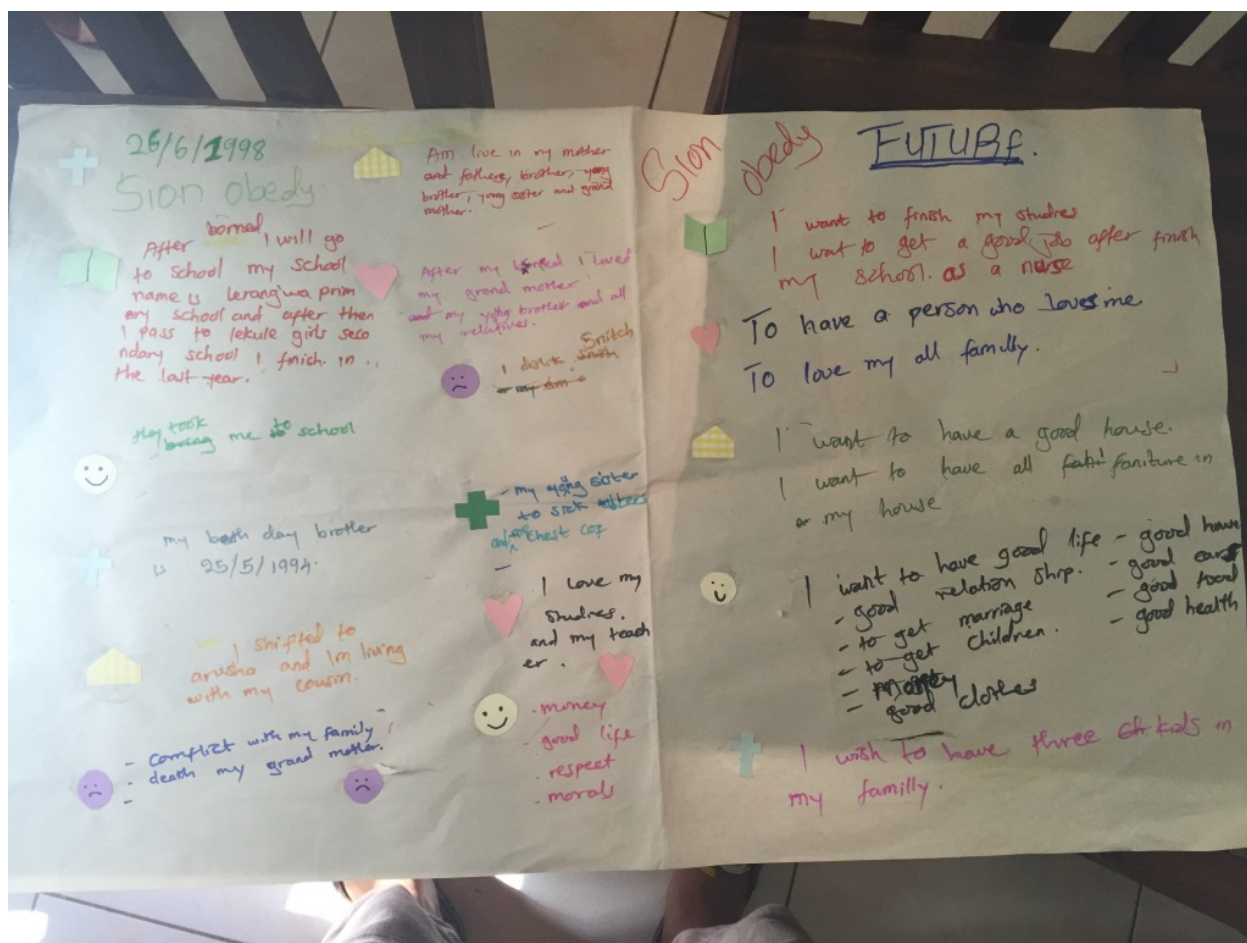 25/6/1998
Sion obedy
After borned I will go
to school my school
name is lerang'wa prim
ary school and after then
I pass to lekule girls seco
ndary school I finich in ..
the last year.
they took
me to school
my both day brother
is 25/5/1994.
I shifted to
arusha and Im living
with my cousin.
- Conflict with my family
- death my grand mother.
-
Am live in my mother
and fathers, brother, yong
brother, yong sister and grand
mother.
After my borned I loved
my grand mother
and my yong brother and all
my relatives.
I dislik Snitch
- my yong sister
to sick
chest cof
-
I love my
studies.
and my teach
er.
- money
- good life
- respect
- morals
Sion obedy
FUTURE.
I want to finish my studies
I want to get a good job after finish
my school. as a nurse
To have a person who loves me
To love my all familly.
I want to have a good house.
I want to have all faniture in
my house
I want to have good life - good have
- good relation ship. - good cars
- to get marriage - good food
- to get children. - good health
- money
- good clothes
I wish to have three kids in
my familly.